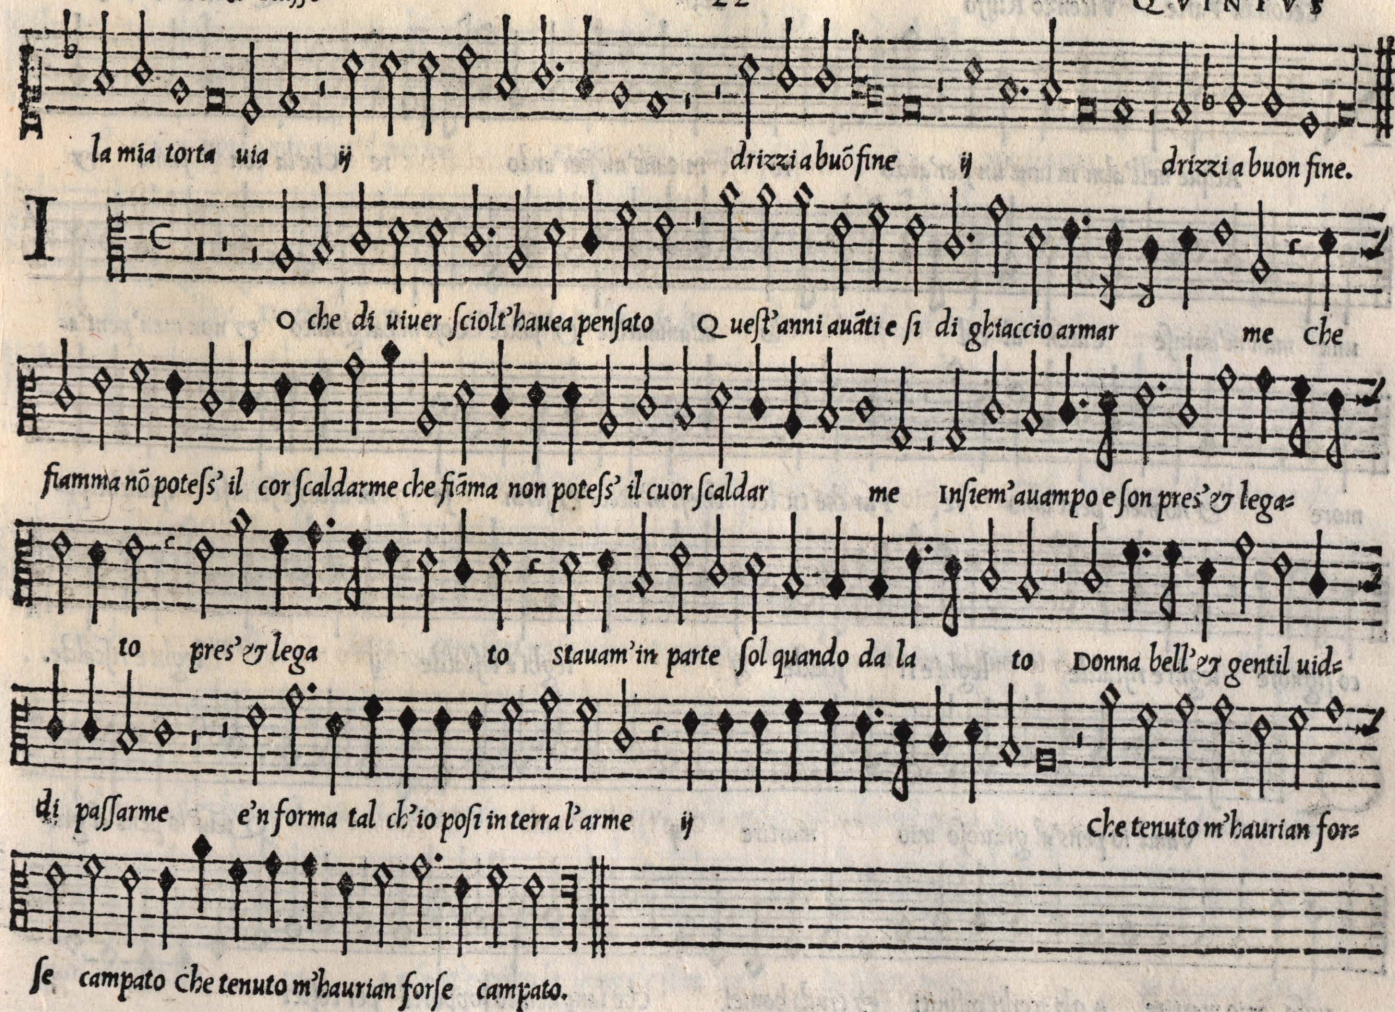 22 QVINTVS
la mia torta uia ij drizzi a buō fine ij drizzi a buon fine.
I
O che di uiuer ſciolt’hauea penſato Queſt’anni auāti e ſi di ghiaccio armar me Che
fiamma nō poteſs’ il cor ſcaldarme che fiāma non poteſs’ il cuor ſcaldar me Inſiem’auampo e ſon pres’ & lega=
to pres’ & lega to Stauam’in parte ſol quando da la to Donna bell’ & gentil uid=
di paſſarme e’n forma tal ch’io poſi in terra l’arme ij Che tenuto m’haurian for=
ſe campato Che tenuto m’haurian forſe campato.